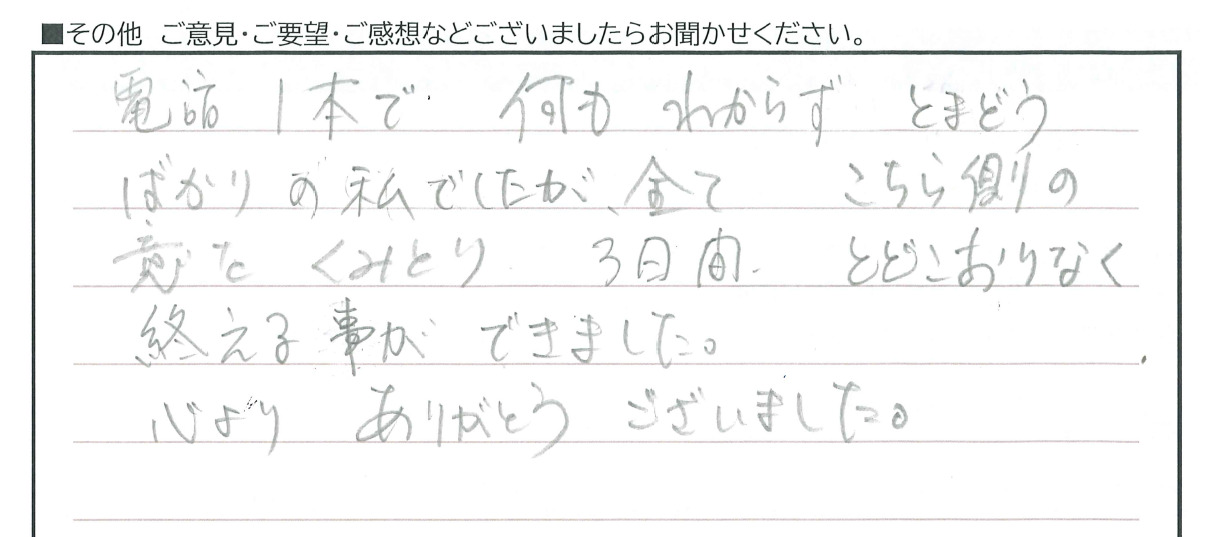 ■その他 ご意見・ご要望・ご感想などございましたらお聞かせください。
電話1本で 何も わからず とまどう
ばかりの私でしたが、全て こちら側の
意を くみとり 3日間 とどこおりなく
終える事が できました。
心より ありがとう ございました。